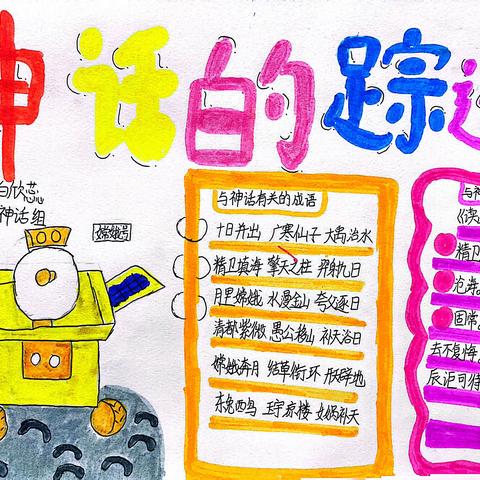 神话的踪
白欣蕊
神话组
嫦娥号
与神话有关的成语
十日并出 广寒仙子 大禹治水
精卫填海 擎天之柱 羿射九日
月里嫦娥 水漫金山 夸父逐日
清都紫微 愚公移山 补天浴日
嫦娥奔月 结草衔环 开天辟地
东兔西乌 玉宇琼楼 女娲补天
与
《读
精卫
沧海
固常
去不复悔
辰讵可待